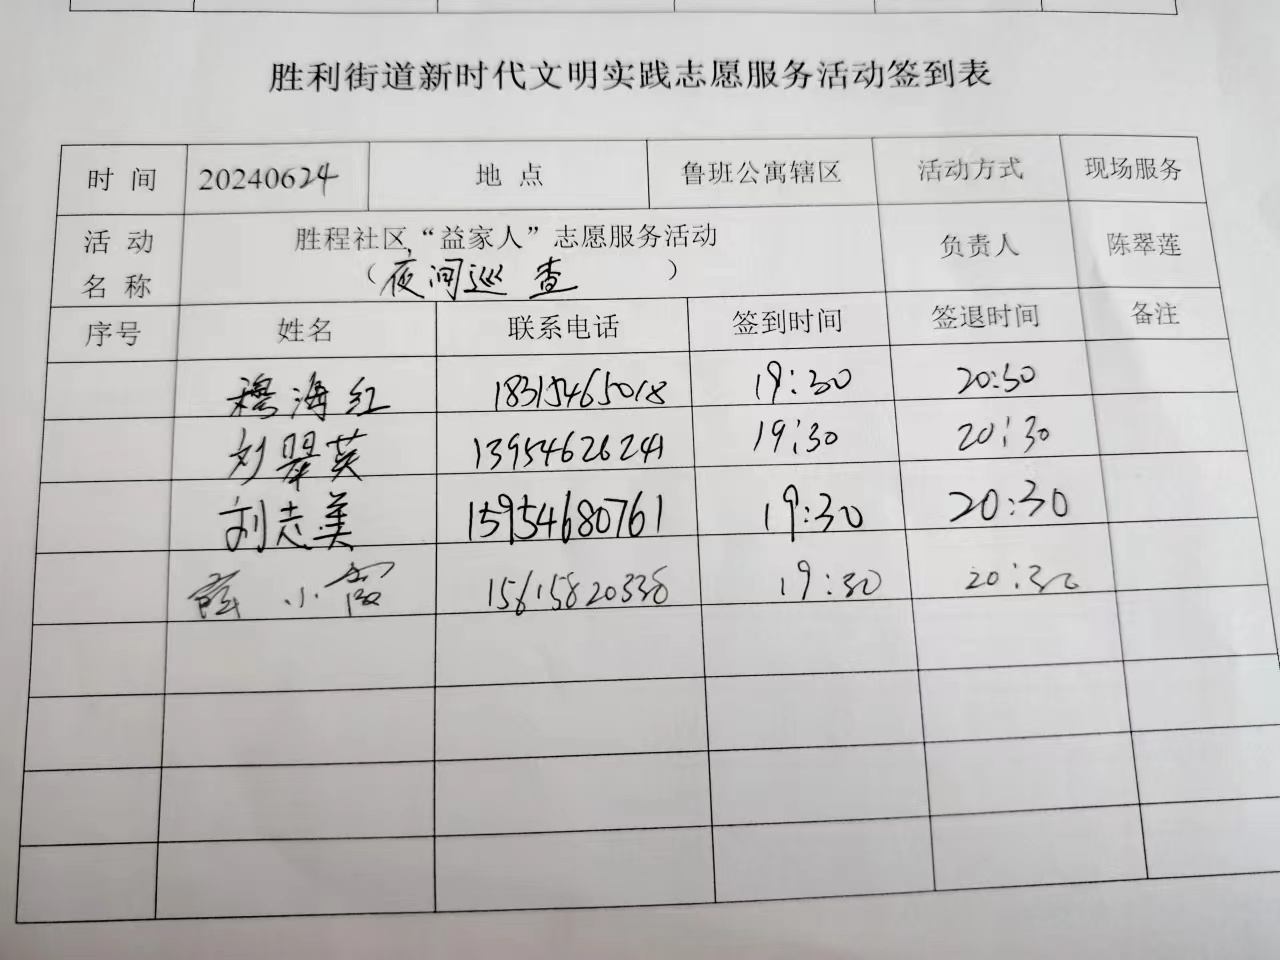 胜利街道新时代文明实践志愿服务活动签到表
时 间 20240624 地 点 鲁班公寓辖区 活动方式 现场服务
活 动 名 称 胜程社区“益家人”志愿服务活动 负责人 陈翠莲
（夜间巡查 ）
序号 姓名 联系电话 签到时间 签退时间 备注
穆海红 18315465018 19:30 20:30
刘翠英 13954626241 19:30 20:30
刘志美 15954680761 19:30 20:30
薛小 15615820338 19:30 20:30